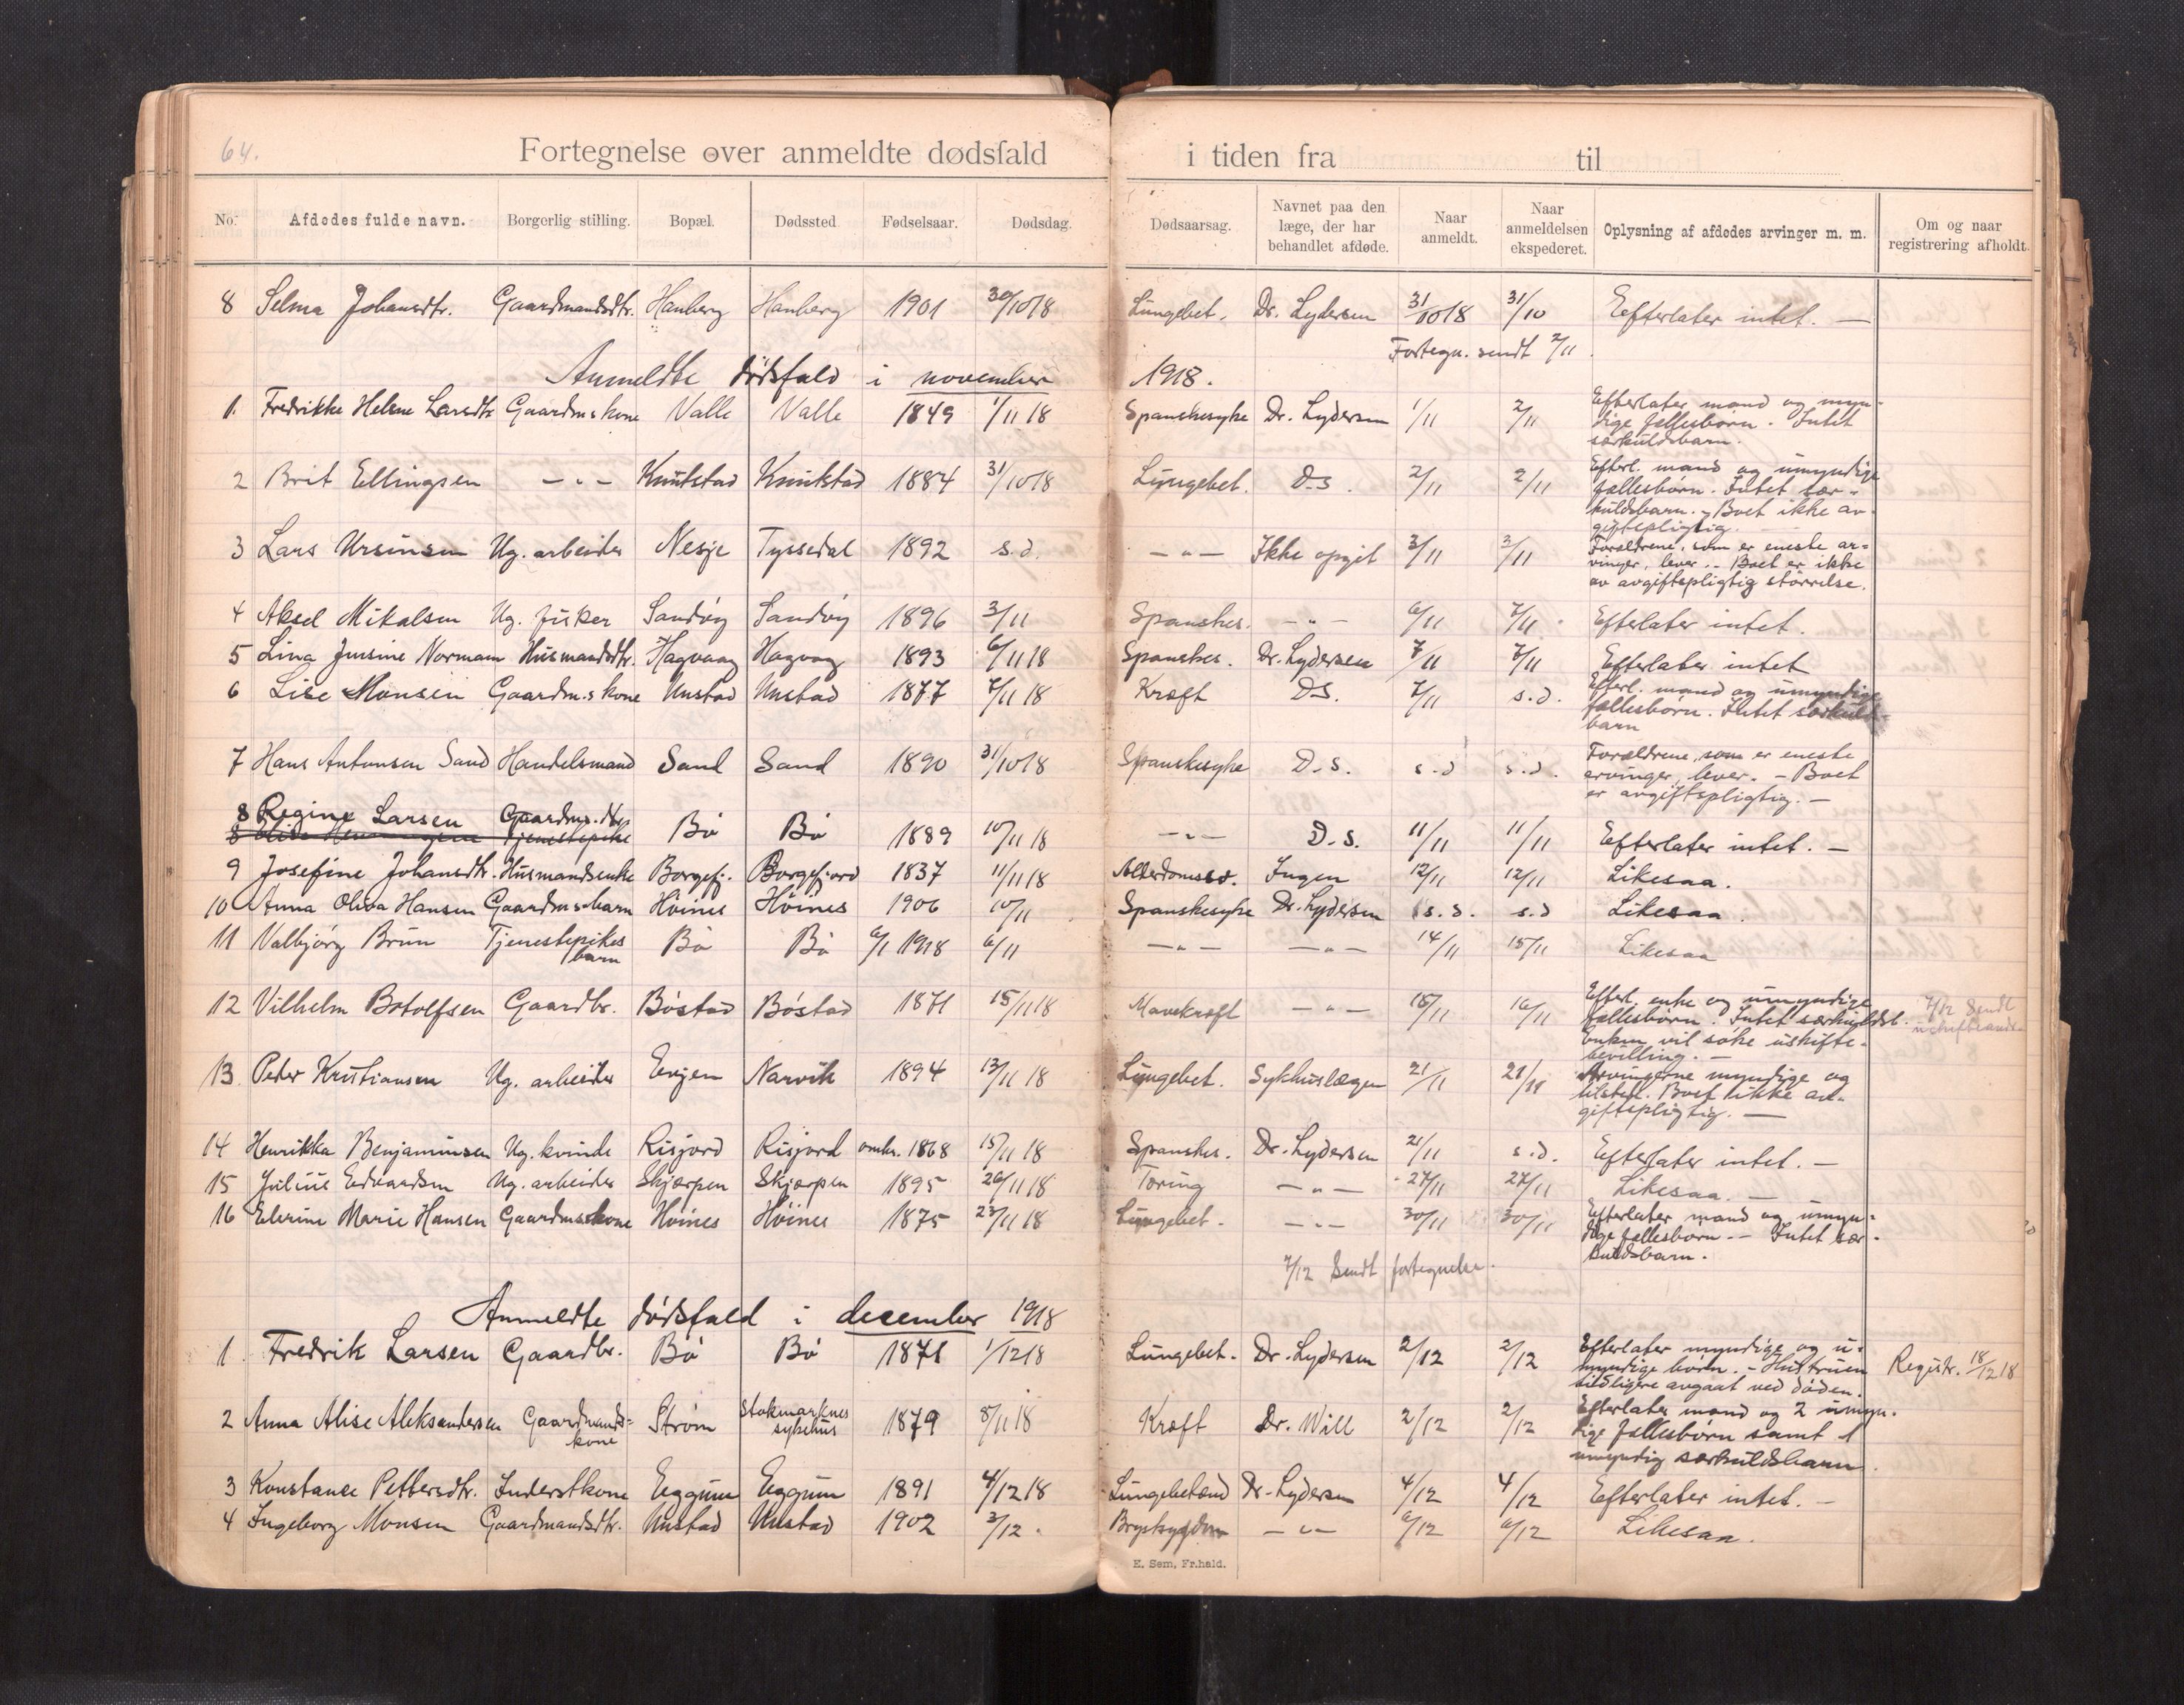 64.
Fortegnelse over anmeldte dødsfald i tiden fra til
No. Afdødes fulde navn. Borgerlig stilling. Bopæl. Dødssted Fødselsaar. Dødsdag. Dødsaarsag. Navnet paa den læge, der har behandlet afdøde. Naar anmeldt. Naar anmeldelsen ekspederet. Oplysning af afdødes arvinger m. m. Om og naar registrering afholdt.
8 Selma Johansdtr. Gaardmandsdtr. Hanberg Hanberg 1901 30/10 18 Lungebet. Dr. Lydersen 31/10 18 31/10 Efterlater intet. —
Fortegn. sendt 2/11.
Anmeldte dødsfald i november 1918.
1. Fredrikke Helene Larsdtr Gaardm.s kone Valle Valle 1849 1/11 18 Spanskesyke Dr. Lydersen 1/11 2/11 Efterlater mand og myn-
dige fællesbørn. Intet
særkuldsbarn.
2 Brit Ellingsen — " — Knutstad Knutstad 1884 31/10 18 Lungebet. D.S. 2/11 2/11 Efterl. mand og umyndige
fællesbørn. Intet sær-
kuldsbarn. - Boet ikke av-
giftspligtig.
3 Lars Ursinsen Ug. arbeider Nesje Tyssedal 1892 s.d. — " — Ikke opgit 3/11 3/11 Forældrene, som er eneste ar-
vinger, lever. - Boet er ikke
av avgiftspligtig størrelse.
4 Aksel Mikalsen Ug. fisker Sandøy Sandøy 1896 3/11 Spanskes. — " — 6/11 7/11 Efterlater intet.
5 Lina Jensine Normann Husmandsdtr. Hagvaag Hagvag 1893 6/11 18 Spanskes. Dr. Lydersen 7/11 7/11 Efterlater intet
6 Lise Monsen Gaardm.s kone Unstad Unstad 1877 7/11 18 Kræft D.S. 7/11 s.d. Efterl. mand og umyndige
fællesbørn. Intet særkulds-
barn
7 Hans Antonsen Sand Handelsmand Sand Sand 1890 31/10 18 Spanskesyke D.S. s.d s.d. Forældrene, som er eneste
arvinger, lever. - Boet
er avgiftspligtig. —
8 Regine Larsen Gaardm.dtr
8 Tjenestepike Bø Bø 1889 10/11 18 — " — D.S. 11/11 11/11 Efterlater intet. —
9 Josefine Johansdtr. Husmandsenke Borgefj. Borgefjord 1837 11/11 18 Alderdomssv. Ingen 12/11 12/11 Likesaa.
10 Anna Oliva Hansen Gaardm.s barn Høines Høines 1906 10/11 Spanskesyke Dr. Lydersen s.d. s.d Likesaa.
11 Valbjørg Brun Tjenestepikes
barn Bø Bø 6/1 1918 6/11 — " — — " — 14/11 15/11 Likesaa
12 Vilhelm Botolfsen Gaardbr. Bøstad Bøstad 1871 15/11 18 Mavekræft — " — 16/11 16/11 Efterl. enke og umyndige
fællesbørn. Intet særkuldsb.
Enken vil søke uskifte-
bevilling. — 7/12 Sendt
13 Peder Kristiansen Ug. arbeider Evjen Narvik 1894 13/11 18 Lungebet. Sykhuslægen 21/11 21/11 Arvingerne myndige og
tilsted. Boet ikke av-
giftspligtig. —
14 Henrikka Benjaminsen Ug. kvinde Risjord Risjord omkr. 1868 15/11 18 Spanskes. Dr. Lydersen 21/11 s.d. Efterlater intet. —
15 Julius Edvardsen Ug. arbeider Skjærpen Skjærpen 1895 26/11 18 Tæring — " — 27/11 27/11 Likesaa. —
16 Elerine Marie Hansen Gaardmskone Høines Høines 1875 23/11 18 Lungebet. — " — 30/11 30/11 Efterlater mand og umyn-
dige fællesbørn. - Intet sær-
kuldsbarn.
7/12 Sendt fortegnelse.
Anmeldte dødsfald i december 1918
1 Fredrik Larsen Gaardbr. Bø Bø 1871 1/12 18 Lungebet. Dr. Lydersen 2/12 2/12 Efterlater myndige og u-
myndige børn. - Hustruen
tidligere avgaat ved døden. Registr. 18/12 18
2 Anna Alise Aleksandersen Gaardmands-
kone Strøm Stokmarknes
sykehus 1879 8/11 18 Kræft Dr. Will 2/12 2/12 Efterlater mand og 2 umyn.
dige fællesbørn samt 1
umyndig særkuldsbarn.
3 Konstance Pettersdtr. Inderstkone Eggum Eggum 1891 4/12 18 Lungebetænd Dr. Lydersen 4/12 4/12 Efterlater intet. —
4 Ingeborg Monsen Gaardmandsdtr. Unstad Unstad 1902 3/12. Brystsygdom — " — 6/12 6/12 Likesaa.
E. Sem, Fr.hald.